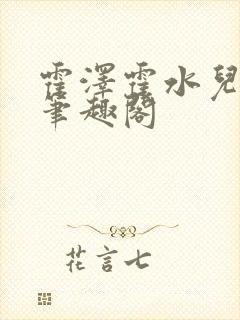 霍澤霍水兒
筆趣閣
花言七